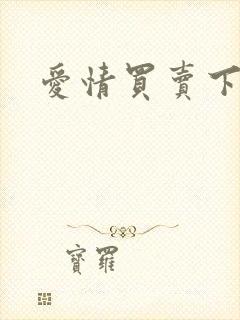 愛情買賣下
寶羅